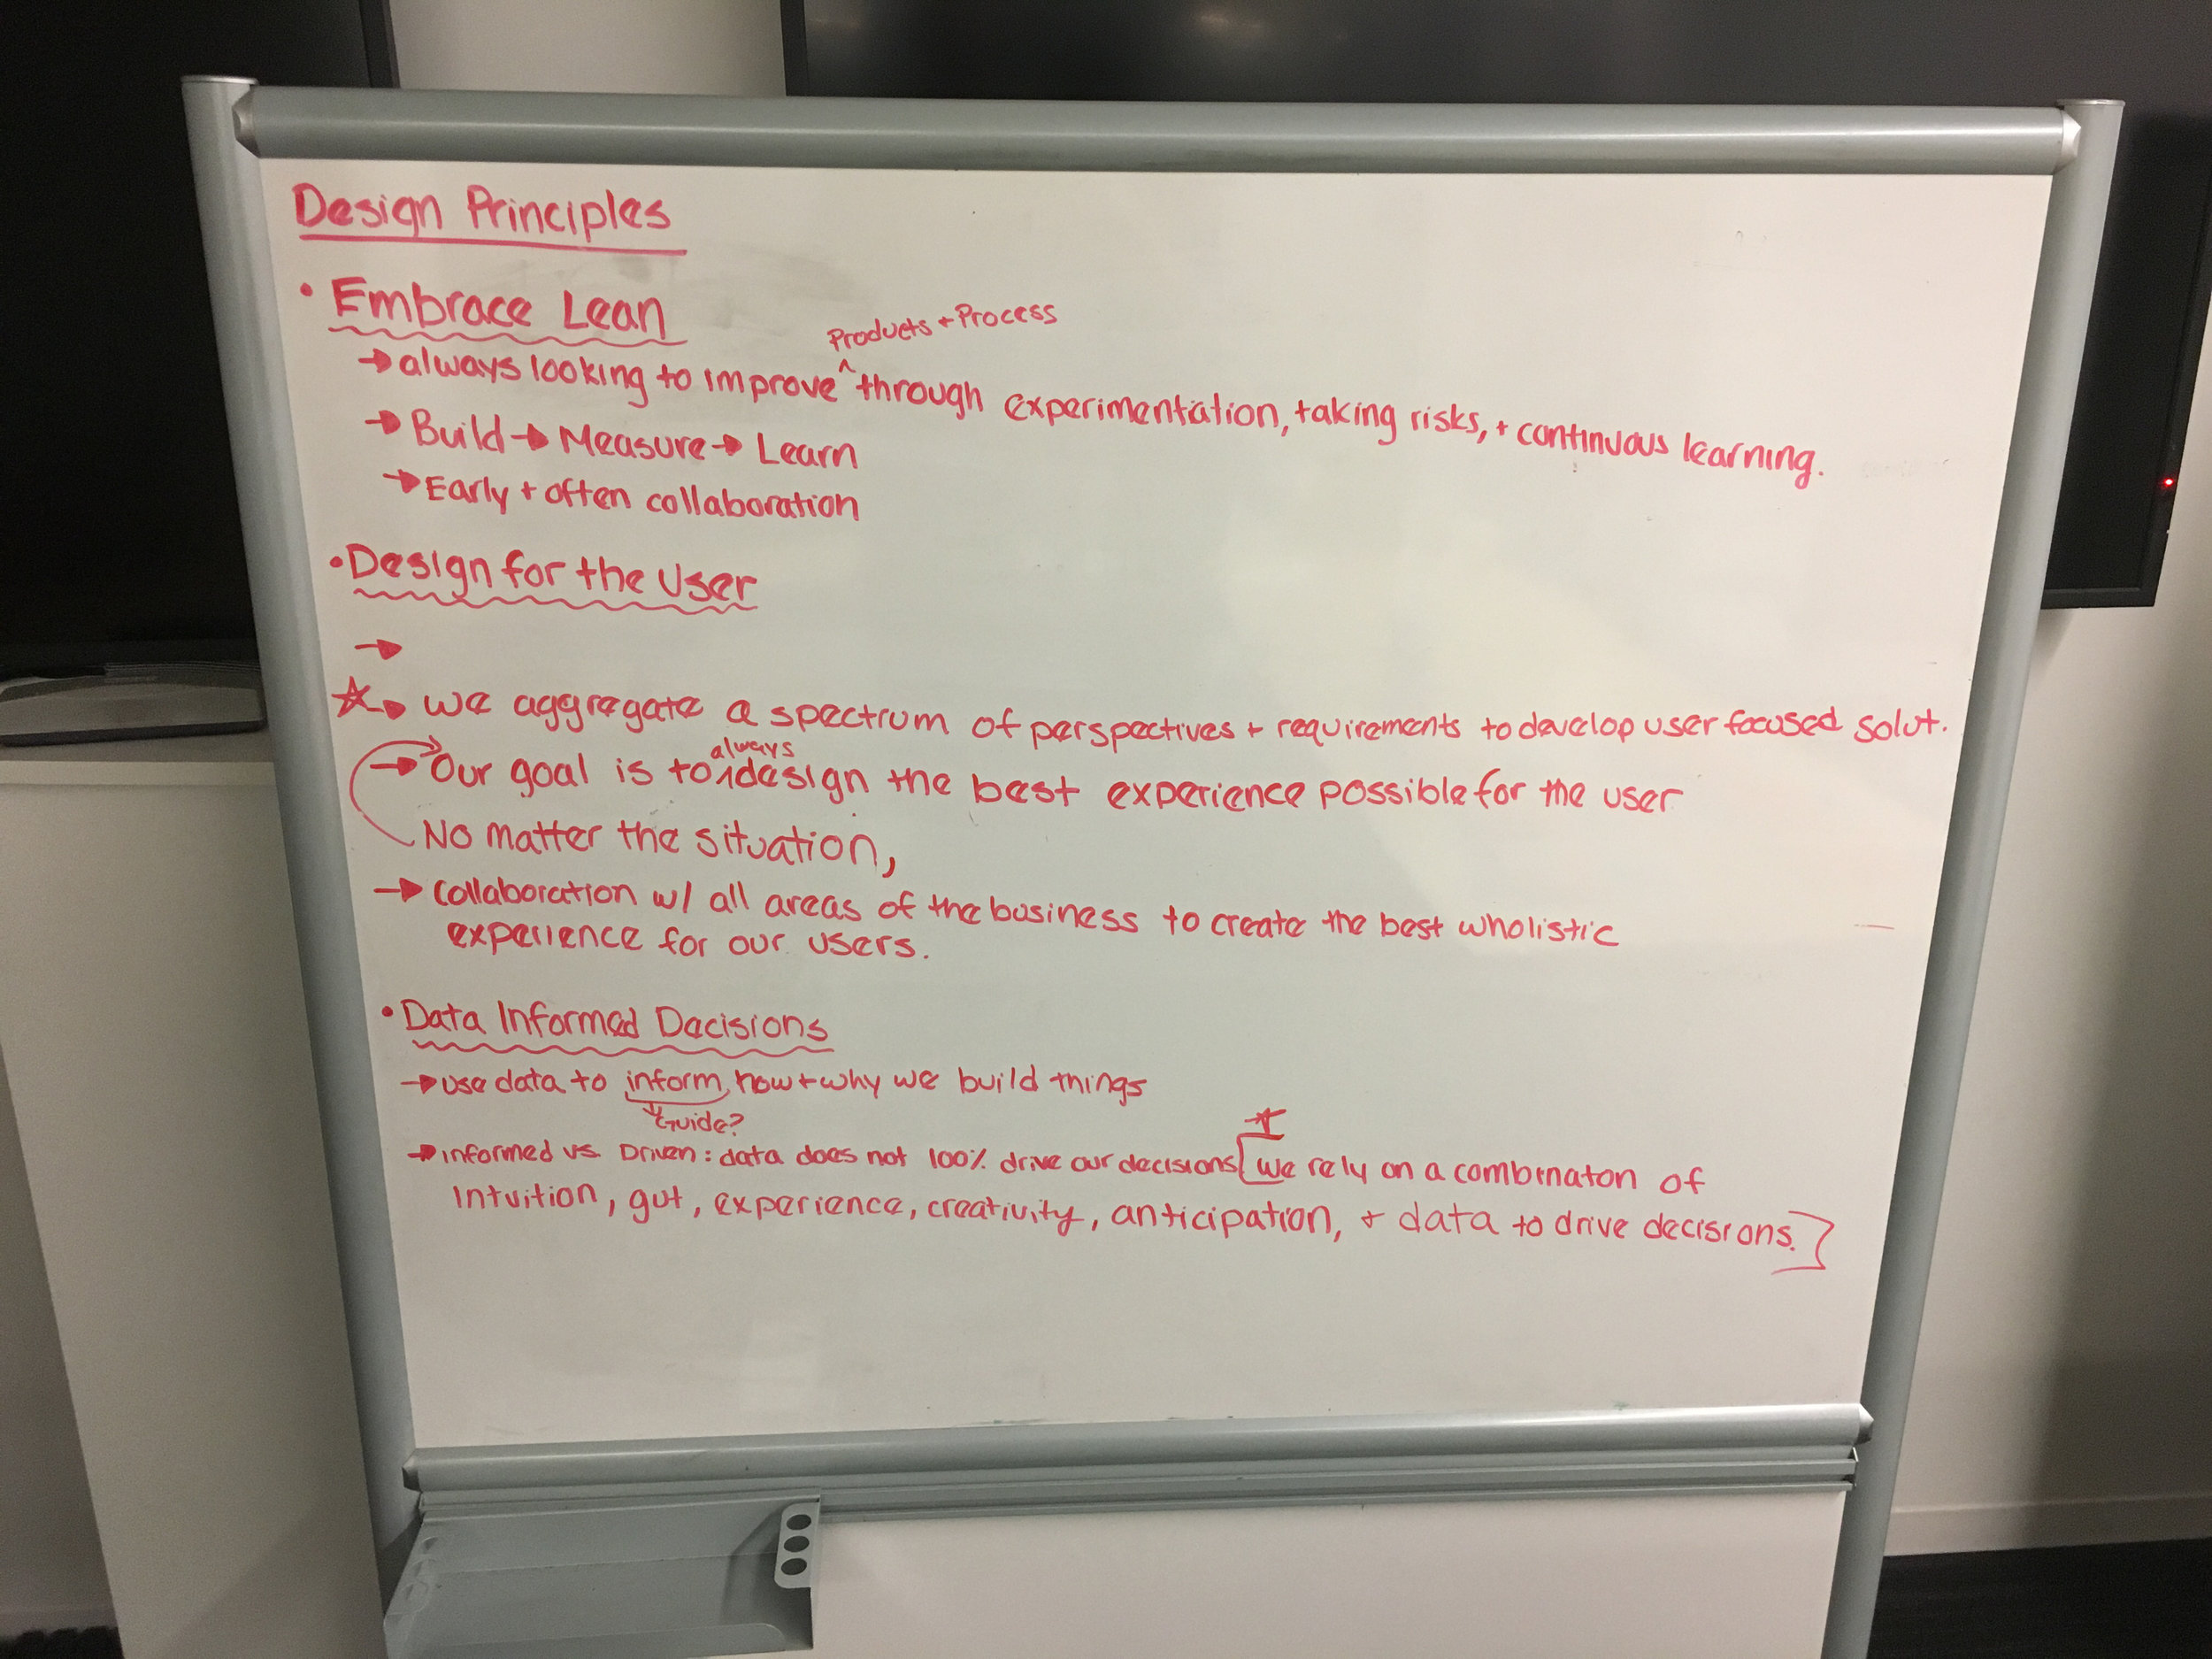 Design Principles
• Embrace Lean
Products + Process
→ always looking to improve ^ through experimentation, taking risks, + continuous learning.
→ Build → Measure → Learn
→ Early + often collaboration
• Design for the User
→
☆→ we aggregate a spectrum of perspectives + requirements to develop user focused solut.
always
→ Our goal is to ^ design the best experience possible for the user
No matter the situation,
→ collaboration w/ all areas of the business to create the best wholistic
experience for our users.
• Data Informed Decisions
→ use data to inform, how + why we build things
Guide?
→ informed vs. Driven: data does not 100% drive our decisions [we rely on a combinaton of
Intuition, gut, experience, creativity, anticipation, + data to drive decisions.]